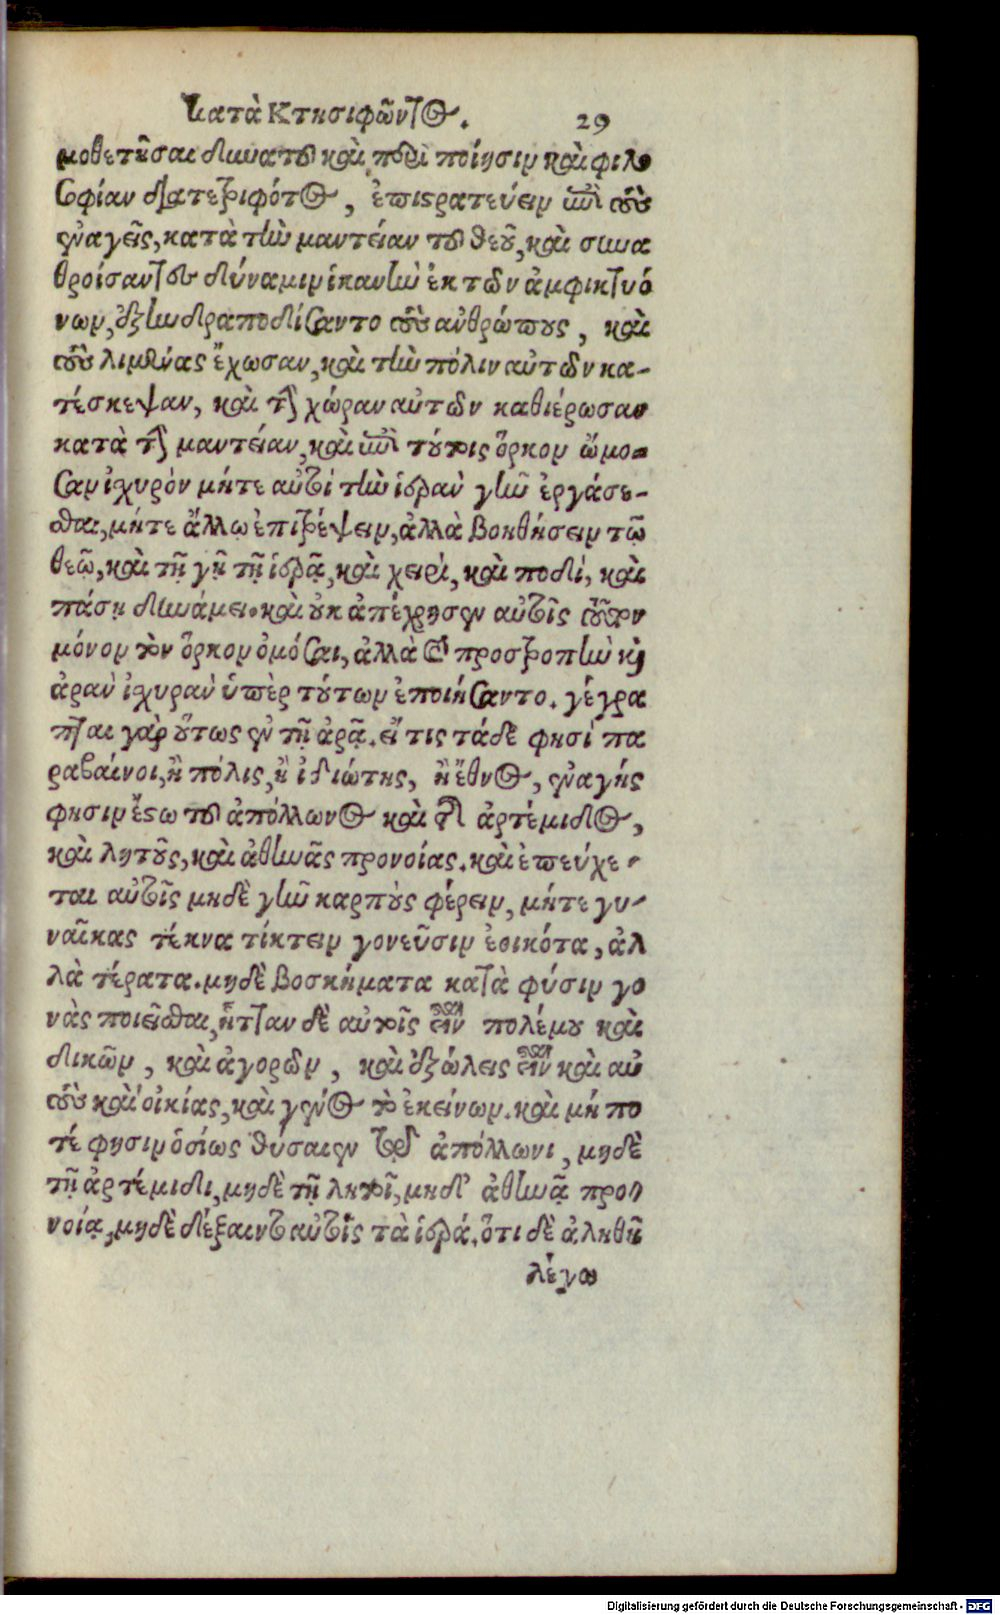 κατὰ Κτησιφῶντος. 29
μοθετῆσαι δυνατοῦ καὶ περὶ ποίησιν καὶ φιλο
σοφίαν διατετριφότος, ἐπιστρατεύειν ἐπὶ τοὺς
ἐναγεῖς, κατὰ τὴν μαντείαν τοῦ θεοῦ, καὶ συνα
θροίσαντες δύναμιν ἱκανὴν ἐκ τῶν ἀμφικτυό
νων, ἐξηνδραποδίσαντο τοὺς ἀνθρώπους, καὶ
τοὺς λιμένας ἔχωσαν, καὶ τὴν πόλιν αὐτῶν κα-
τέσκεψαν, καὶ τὴν χώραν αὐτῶν καθιέρωσαν
κατὰ τὴν μαντείαν, καὶ ἐπὶ τούτοις ὅρκον ὤμο-
σαν ἰσχυρὸν μήτε αὐτοὶ τὴν ἱερὰν γῆν ἐργάσε-
σθαι, μήτε ἄλλῳ ἐπιτρέψειν, ἀλλὰ βοηθήσειν τῷ
θεῷ, καὶ τῇ γῇ τῇ ἱερᾷ, καὶ χειρὶ, καὶ ποδὶ, καὶ
πάσῃ δυνάμει. καὶ οὐκ ἀπέχρησεν αὐτοῖς τοῦτον
μόνον τὸν ὅρκον ὀμόσαι, ἀλλὰ καὶ προστροπὴν καὶ
ἀρὰν ἰσχυρὰν ὑπὲρ τούτων ἐποιήσαντο. γέγρα
πται γὰρ οὕτως ἐν τῇ ἀρᾷ. εἴ τις τάδε φησὶ πα
ραβαίνοι, ἢ πόλις, ἢ ἰδιώτης, ἢ ἔθνος, ἐναγής
φησιν ἔστω τοῦ ἀπόλλωνος καὶ τῆς ἀρτέμιδος,
καὶ λητοῦς, καὶ ἀθηνᾶς προνοίας. καὶ ἐπεύχε-
ται αὐτοῖς μηδὲ γῆν καρποὺς φέρειν, μήτε γυ-
ναῖκας τέκνα τίκτειν γονεῦσιν ἐοικότα, ἀλ
λὰ τέρατα. μηδὲ βοσκήματα κατὰ φύσιν γο
νὰς ποιεῖσθαι, ἧτταν δὲ αὐτοῖς εἶναι πολέμου καὶ
δικῶν, καὶ ἀγορῶν, καὶ ἐξώλεις εἶναι καὶ αὐ
τοὺς καὶ οἰκίας, καὶ γένος τὸ ἐκείνων. καὶ μή πο
τέ φησιν ὁσίως θύσαιεν τῷ ἀπόλλωνι, μηδὲ
τῇ ἀρτέμιδι, μηδὲ τῇ λητοῖ, μηδ’ ἀθηνᾷ προ-
νοίᾳ, μηδὲ δέξαιντο αὐτοῖς τὰ ἱερά. ὅτι δὲ ἀληθῆ
λέγω
Digitalisierung gefördert durch die Deutsche Forschungsgemeinschaft - DFG